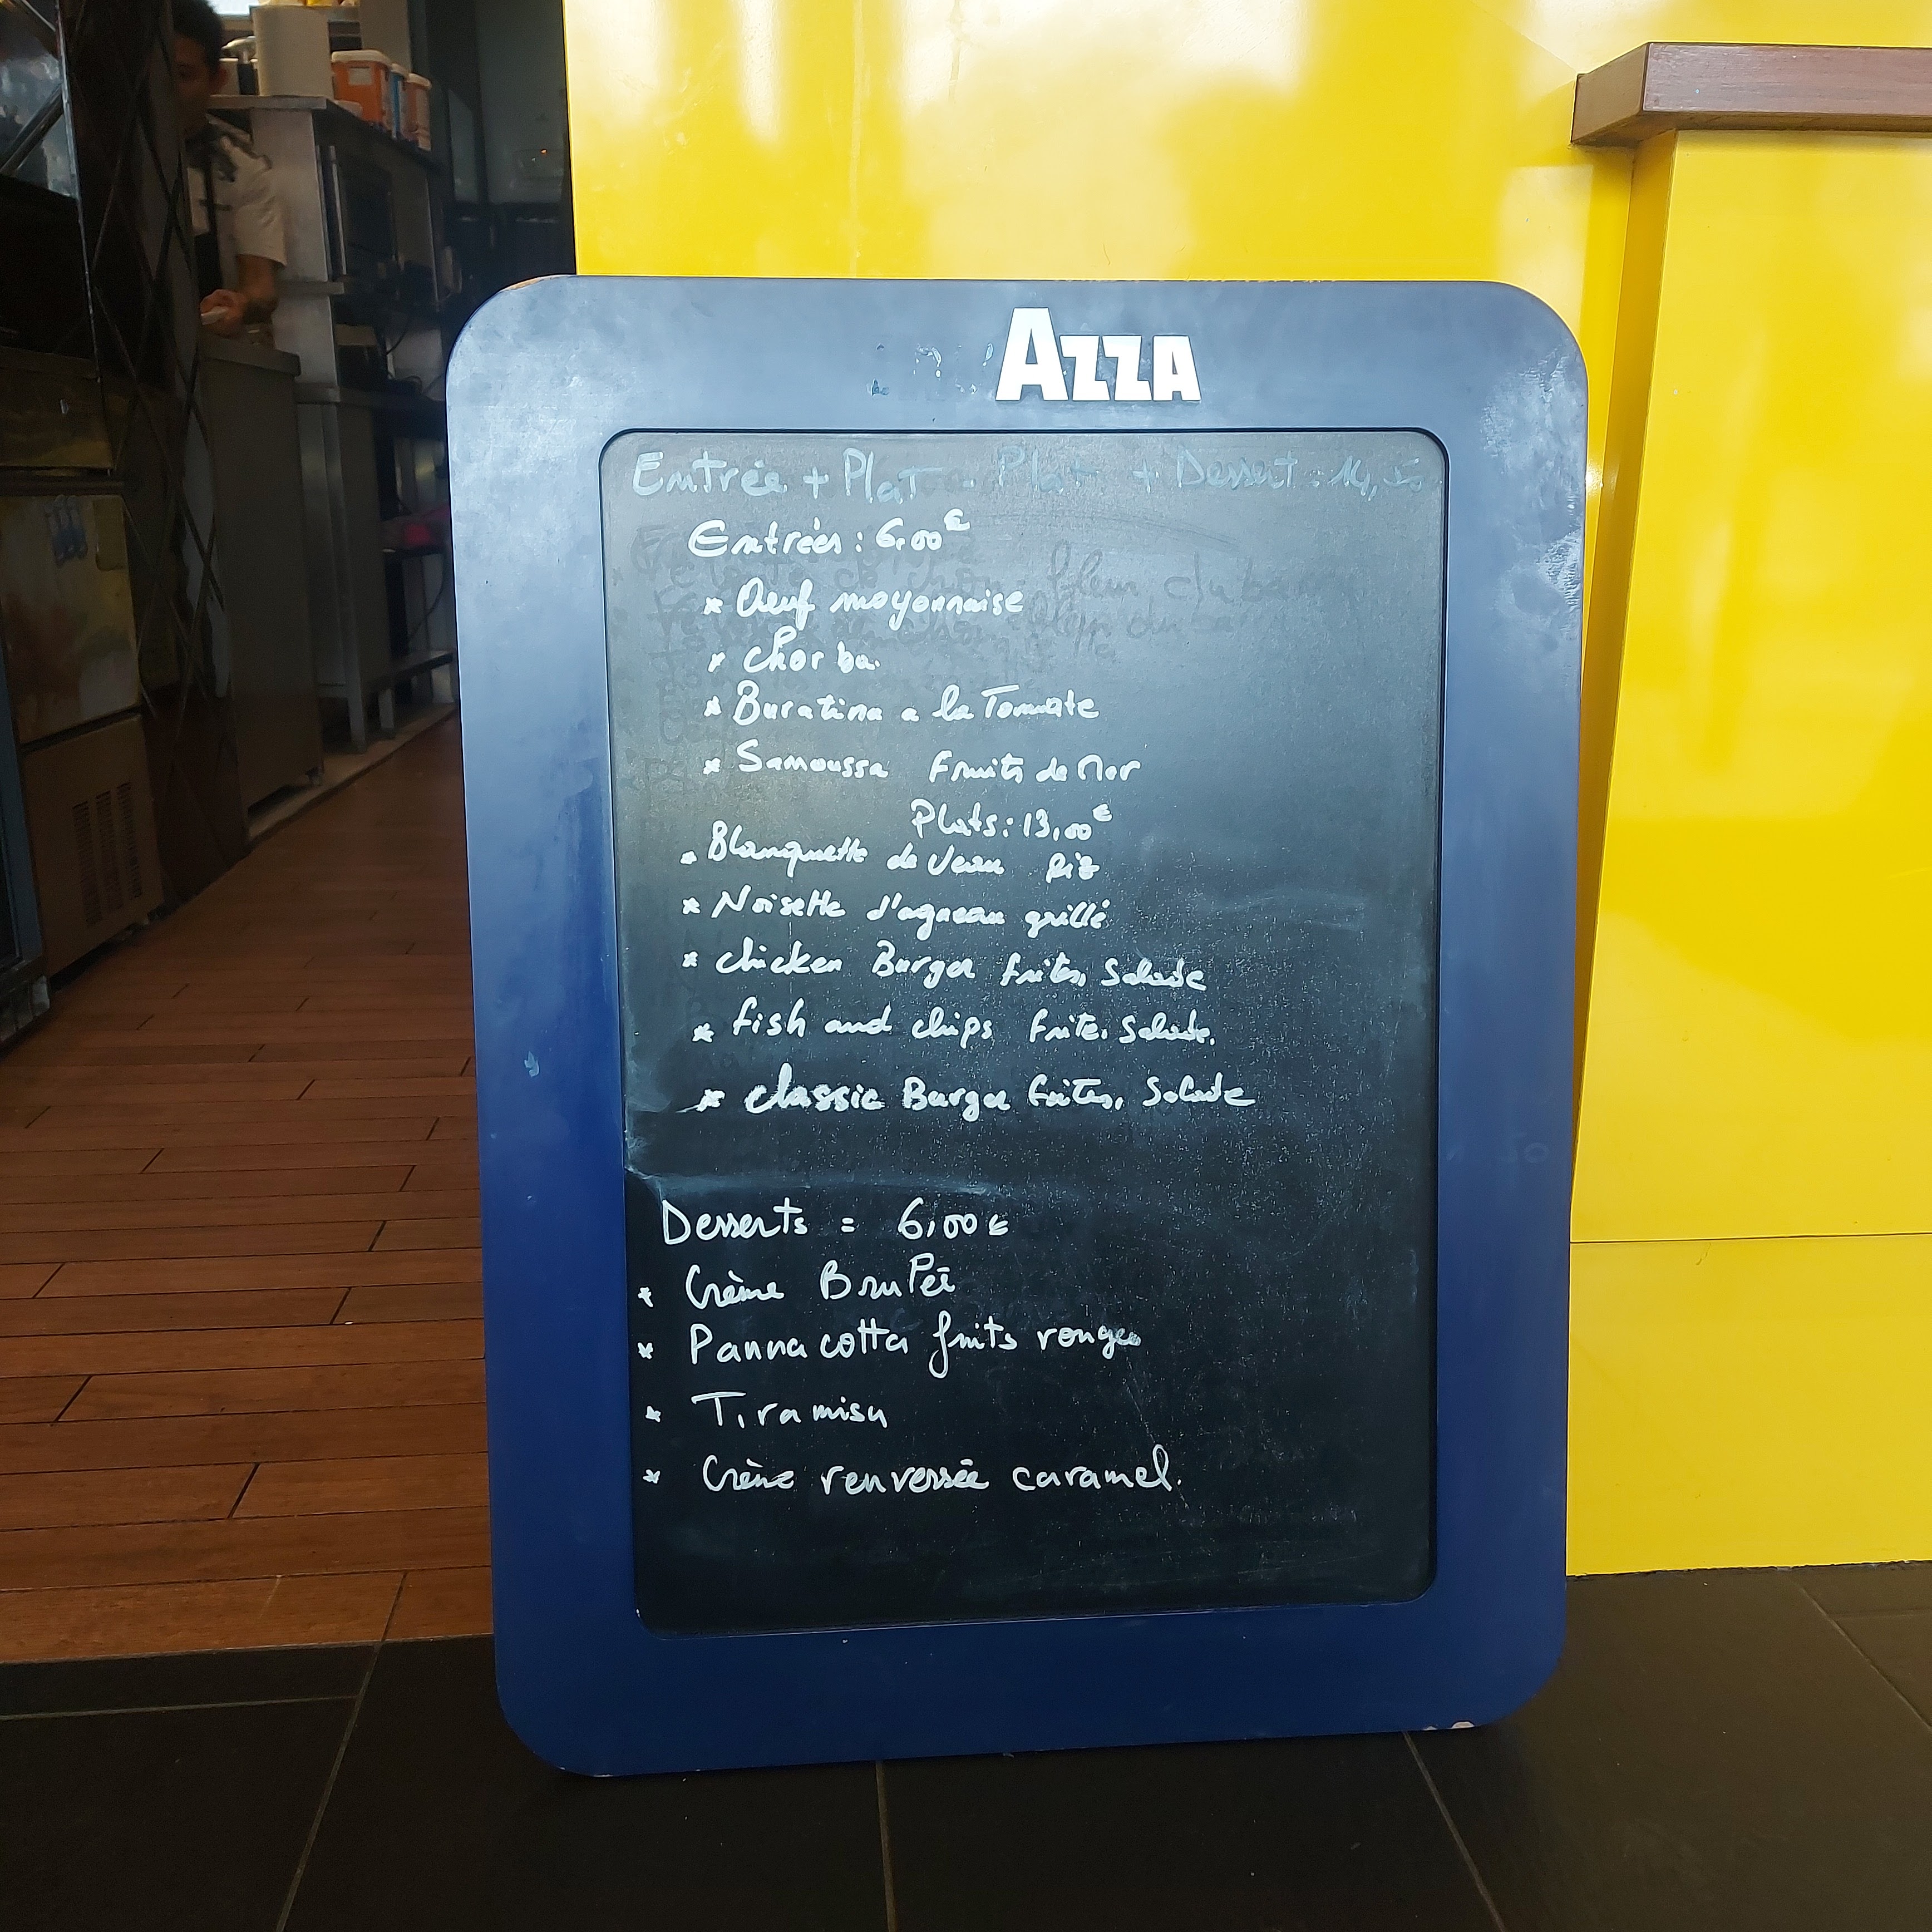 AZZA
Entrée + Plat - Plat + Dessert : 14,50
Entrées : 6,00€
* Oeuf moyonnaise
* chorba.
* Buratina a la Tomate
* Samoussa Fruits de Mer
Plats : 13,00€
* Blanquette de Veau Riz
* Noisette d'agneau grillé
* chicken Burger frites, Salade
* fish and chips frites. Salade.
* classic Burger frites, Salade
Desserts = 6,00€
* Crème Brulée
* Panna cotta fruits rouges
* Tiramisu
* Crème renversée caramel.